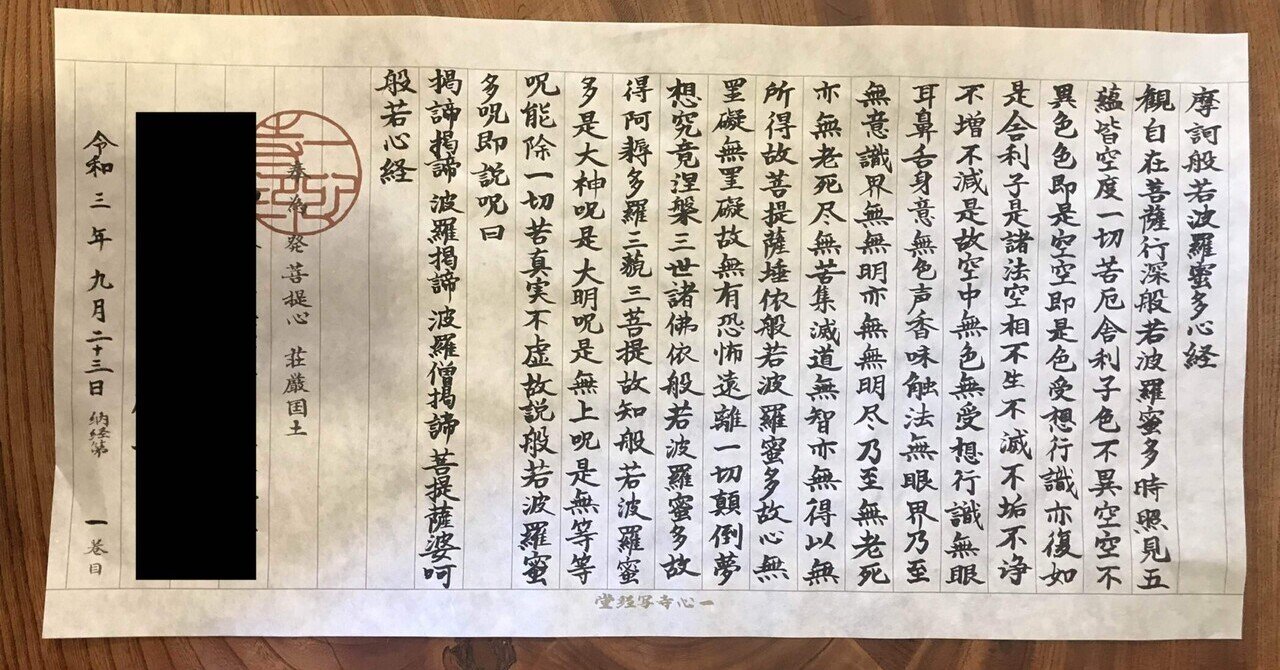 摩訶般若波羅蜜多心経
観自在菩薩行深般若波羅蜜多時照見五
蘊皆空度一切苦厄舎利子色不異空空不
異色色即是空空即是色受想行識亦復如
是舎利子是諸法空相不生不滅不垢不浄
不増不減是故空中無色無受想行識無眼
耳鼻舌身意無色声香味触法無眼界乃至
無意識界無無明亦無無明尽乃至無老死
亦無老死尽無苦集滅道無智亦無得以無
所得故菩提薩埵依般若波羅蜜多故心無
罣礙無罣礙故無有恐怖遠離一切顛倒夢
想究竟涅槃三世諸佛依般若波羅蜜多故
得阿耨多羅三藐三菩提故知般若波羅蜜
多是大神呪是大明呪是無上呪是無等等
呪能除一切苦真実不虚故説般若波羅蜜
多呪即説呪曰
掲諦掲諦 波羅掲諦 波羅僧掲諦 菩提薩婆呵
般若心経
奉為 発菩提心 荘厳囯土
令和三年九月二十三日 納経第 一巻目
一心寺写経堂